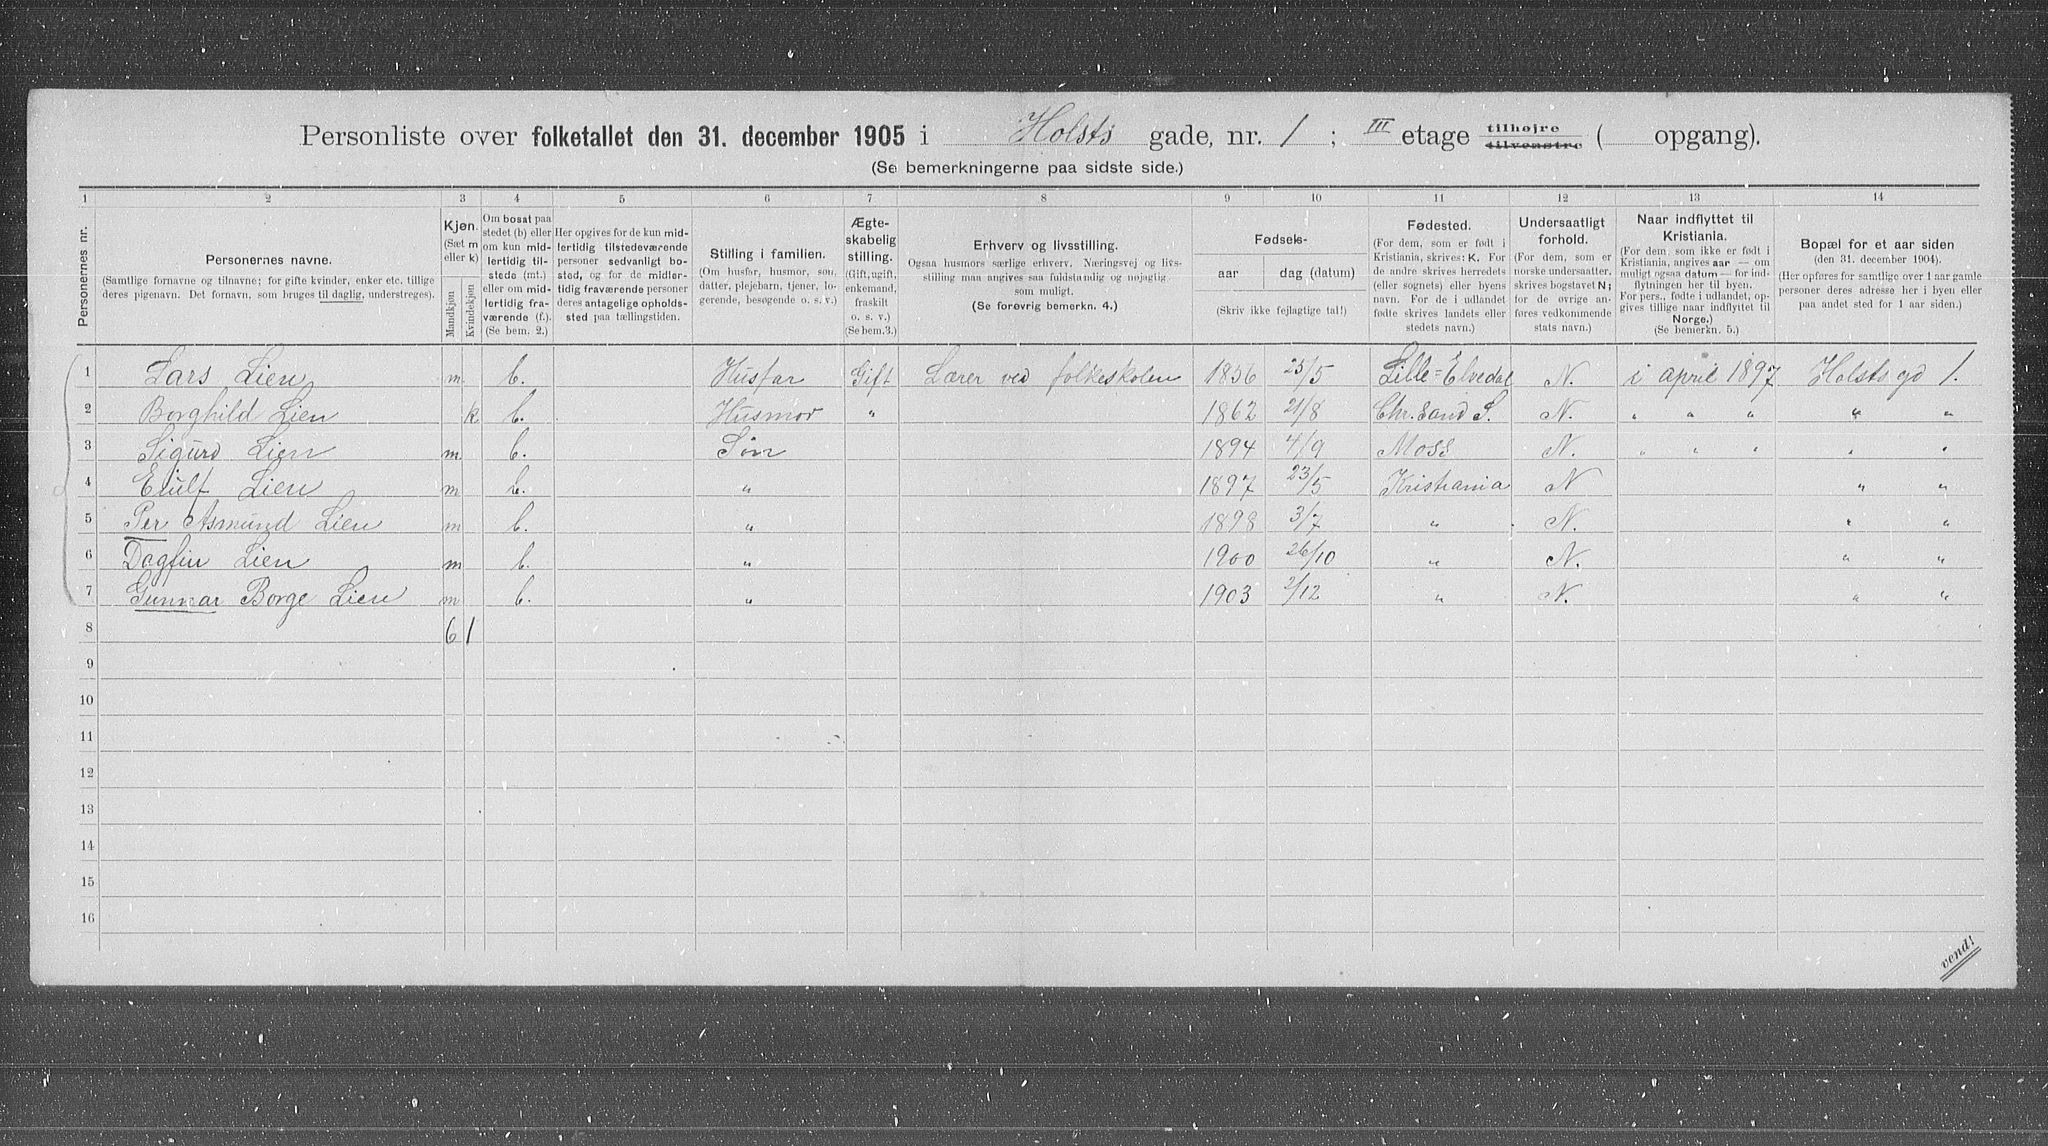 Personliste over folketallet den 31. december 1905 i Holsts gade, nr. 1 ; III etage tilhøjre tilvenstre ( opgang).
(Se bemerkningerne paa sidste side.)
1 2 3 4 5 6 7 8 9 10 11 12 13 14
Personernes nr.
Personernes navne.
(Samtlige fornavne og tilnavne; for gifte kvinder, enker etc. tillige
deres pigenavn. Det fornavn, som bruges til daglig, understreges).
Kjøn.
(Sæt m
eller k)
Mandkjøn
Kvindekjøn
Om bosat paa
stedet (b) eller
om kun mid-
lertidig til-
stede (mt.)
eller om mid-
lertidig fra-
værende (f.).
(Se bem. 2.)
Her opgives for de kun mid-
lertidig tilstedeværende
personer sedvanligt bo-
sted, og for de midler-
tidig fraværende personer
deres antagelige opholds-
sted paa tællingstiden.
Stilling i familien.
(Om husfar, husmor, søn,
datter, plejebarn, tjener, lo-
gerende, besøgende o. s. v.)
Ægte-
skabelig
stilling.
(Gift, ugift,
enkemand,
fraskilt
o. s. v.)
(Se bem. 3.)
Erhverv og livsstilling.
Ogsaa husmors særlige erhverv. Næringsvej og livs-
stilling maa angives saa fuldstandig og nøjagtig
som muligt.
(Se forøvrig bemerkn. 4.)
Fødsels-
aar
dag (datum)
(Skriv ikke fejlagtige tal!)
Fødested.
(For dem, som er født i
Kristiania, skrives: K. For
de andre skrives herredets
(eller sognets) eller byens
navn. For de i udlandet
fødte skrives landets eller
stedets navn.)
Undersaatligt
forhold.
(For dem, som er
norske undersaatter,
skrives bogstavet N;
for de øvrige an-
føres vedkommende
stats navn.)
Naar indflyttet til
Kristiania.
(For dem, som ikke er født i
Kristiania, angives aar — om
muligt ogsaa datum — for ind-
flytningen her til byen.
For pers., fødte i udlandet, op-
gives tillige naar indflyttet til
Norge.)
(Se bemerkn. 5.)
Bopæl for et aar siden
(den 31. december 1904).
(Her opføres for samtlige over 1 aar gamle
personer deres adresse her i byen eller
paa andet sted for 1 aar siden.)
1 Lars Lien m b. Husfar Gift Lærer ved folkeskolen 1856 25/5 Lille=Elvedal N. i april 1897 Holsts gd 1.
2 Borghild Lien k b. Husmor " 1862 21/8 Chr.sand S. N. " " " " "
3 Sigurd Lien m b. Søn 1894 4/9 Moss N. " " " " "
4 Eiulf Lien m b. " 1897 23/5 Kristiania N " "
5 Per Asmund Lien m b. " 1898 3/7 " N. " "
6 Dagfin Lien m b. " 1900 26/10 " N. " "
7 Gunnar Borge Lien m b. " 1903 2/12 " N. " "
8 6 1
9
10
11
12
13
14
15
16
vend!